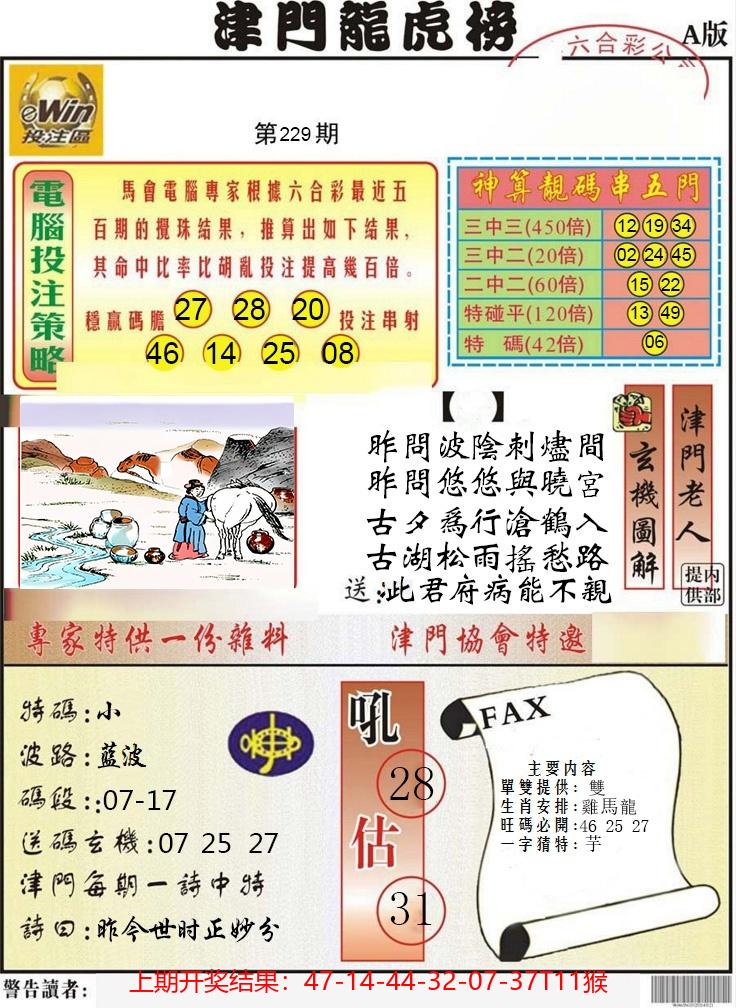 津門龍虎榜
A版
六合彩公
eWin
投注區
第229期
電腦投注策略
馬會電腦專家根據六合彩最近五
百期的攪珠结果，推算出如下结果，
其命中比率比胡亂投注提高幾百倍。
穩贏碼膽 27 28 20 投注串射
46 14 25 08
神算靚碼串五門
三中三(450倍) 12 19 34
三中二(20倍) 02 24 45
二中二(60倍) 15 22
特碰平(120倍) 13 49
特 碼(42倍) 06
【 】
昨問波陰刺燼間
昨問悠悠與曉宮
古夕爲行滄鶴入
古湖松雨搖愁路
送:此君府病能不親
玄機圖解
津門老人
内部提供
專家特供一份雜料
津門協會特邀
特碼:小
波路:蓝波
碼段::07-17
送碼玄機:07 25 27
津門每期一詩中特
詩曰:昨今世时正妙分
吼
28
估
31
FAX
主要内容
單雙提供: 雙
生肖安排:雞馬龍
旺码必開:46 25 27
一字猜特: 芋
警告讀者:
上期开奖结果：47-14-44-32-07-37T11猴